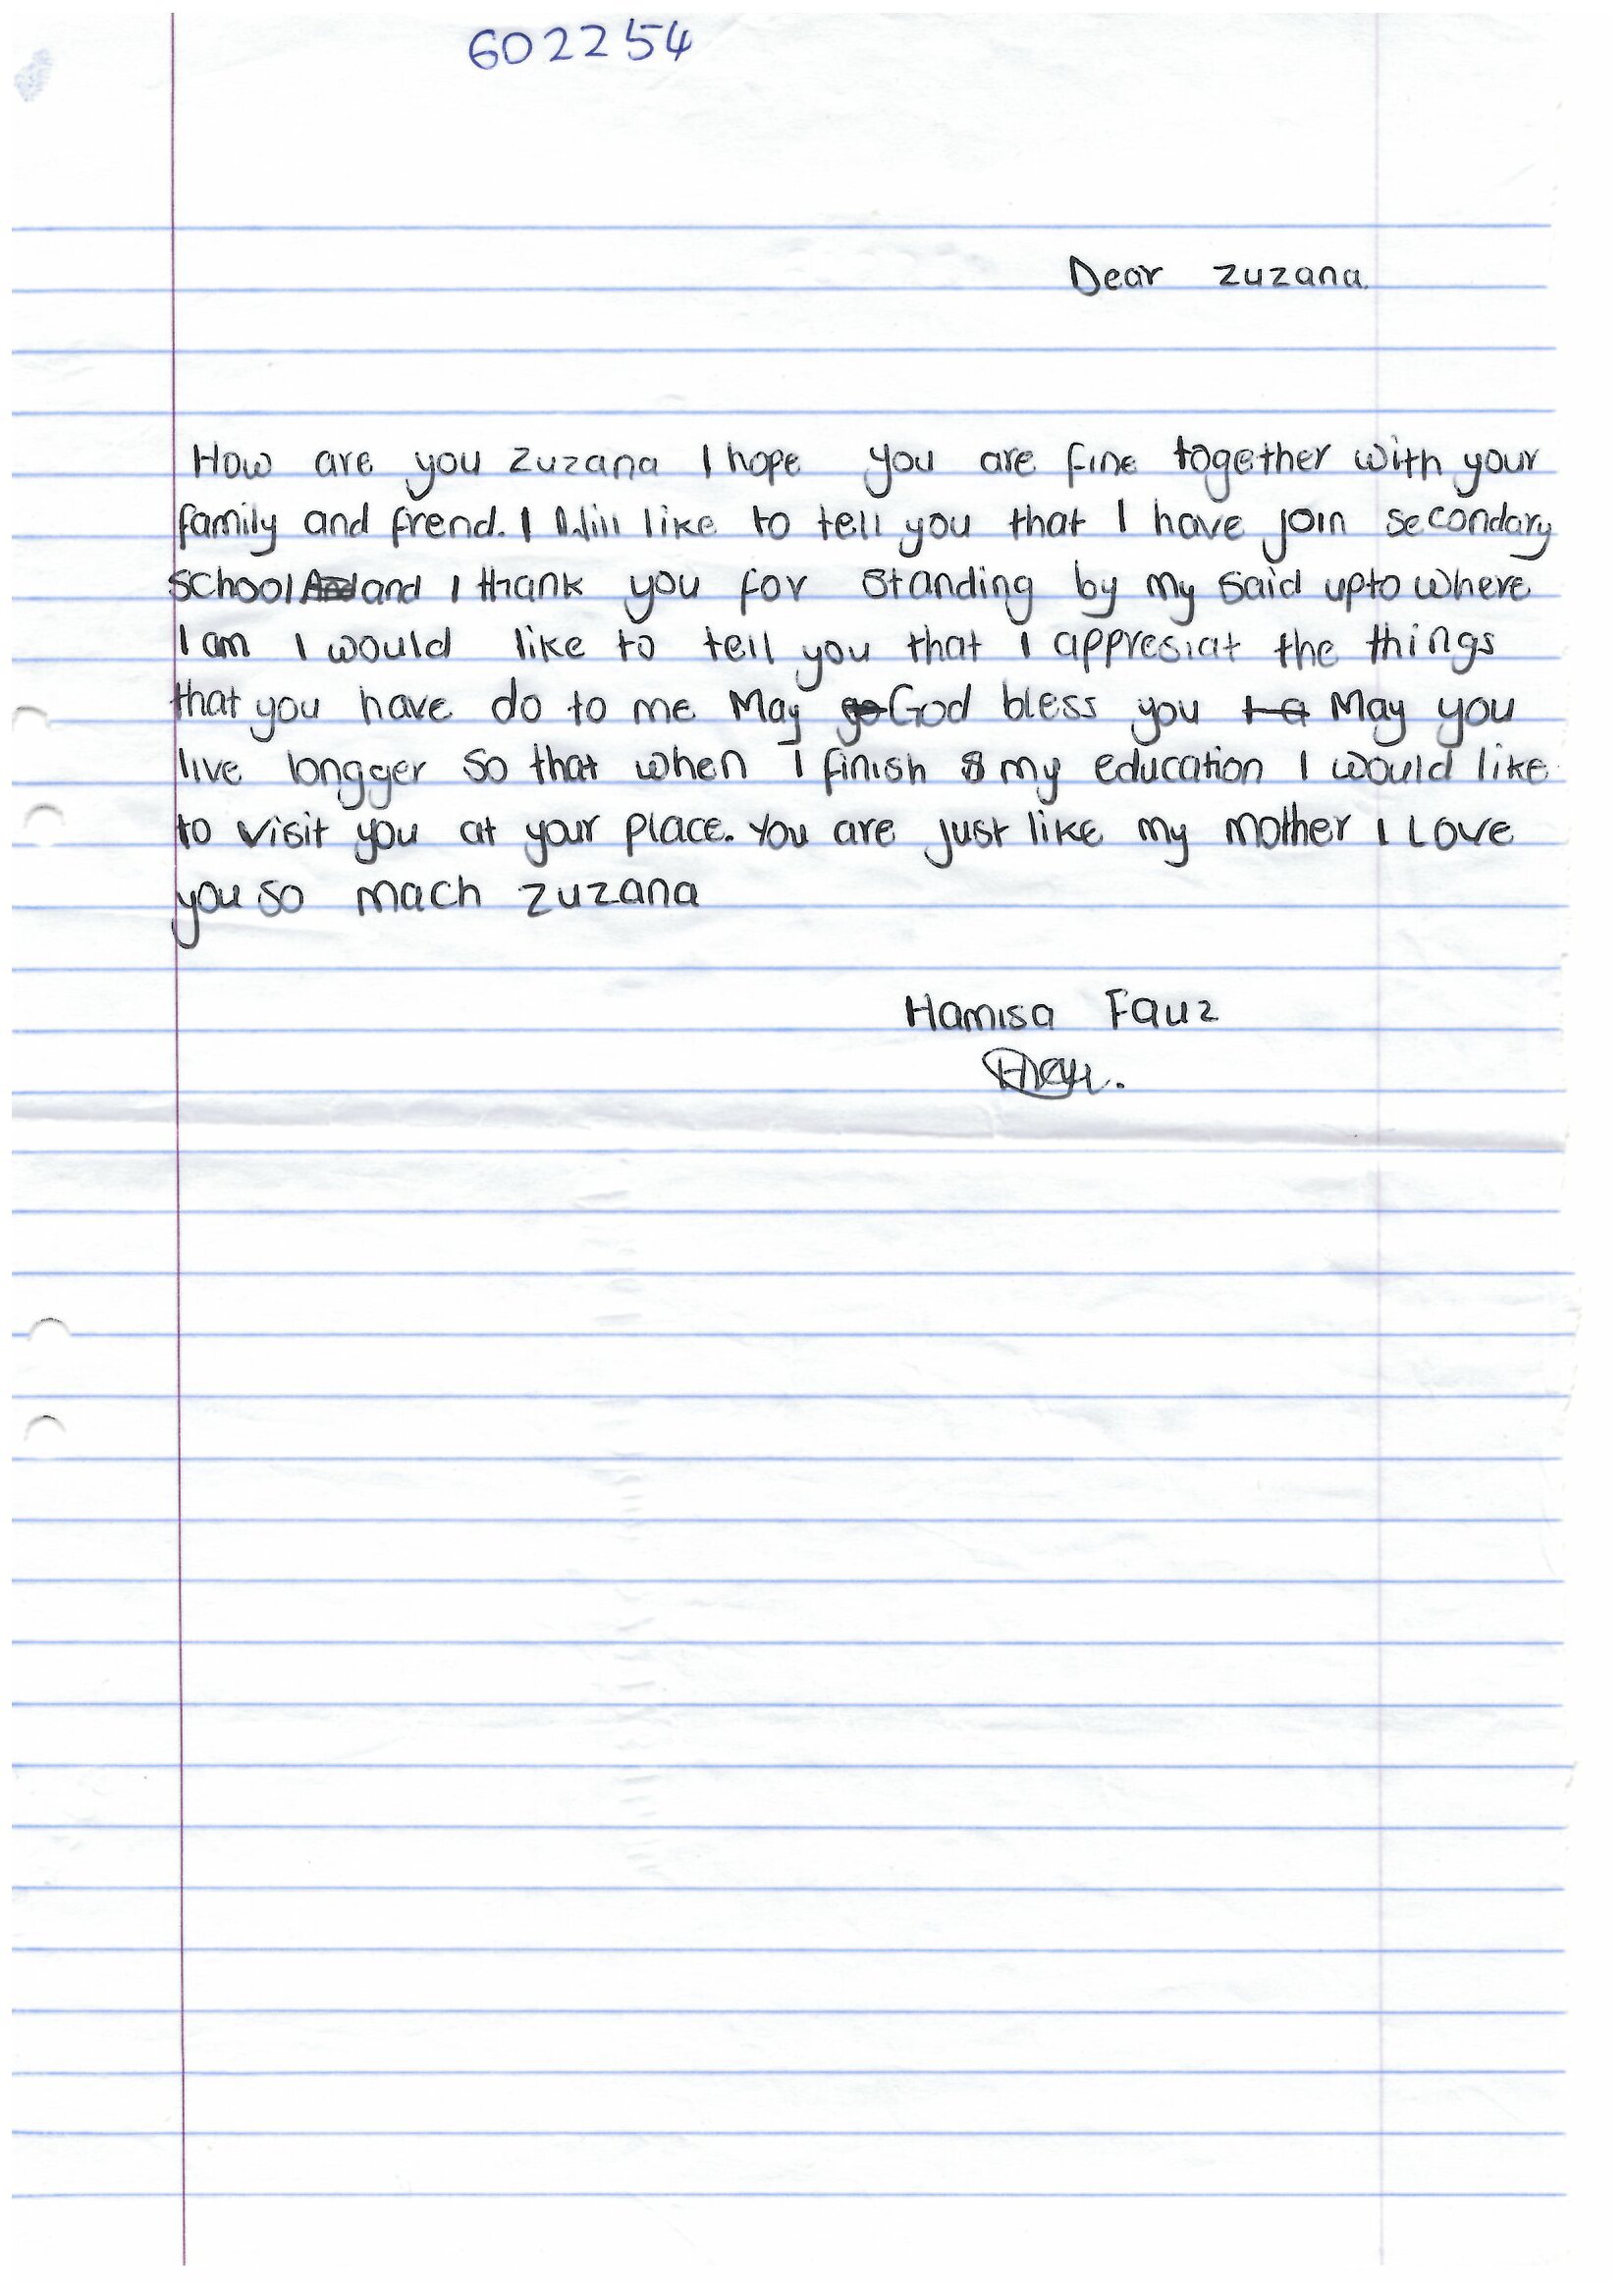 602254
Dear Zuzana.
How are you Zuzana I hope you are fine together with your
family and frend. I Will like to tell you that I have join secondary
school and I thank you for standing by my said upto where
I am I would like to tell you that I appresiat the things
that you have do to me May God bless you May you
live longger so that when I finish my education I would like
to visit you at your place. You are just like my mother I Love
you so mach Zuzana
Hamisa Fauz